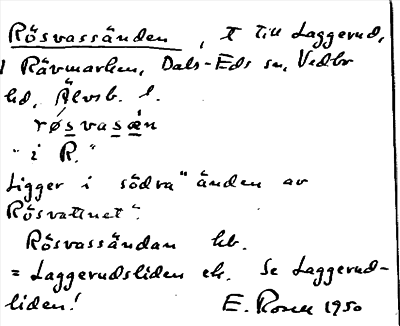 Rösvassänden, T till Laggerud,
i Rävmarken, Dals-Eds sn, Vedbo
hd, Älvsb. l.
røsvasæn
"i R."
Ligger i södra "änden av
Rösvattnet".
Rösvassändan hb.
= Laggerudsliden ek. Se Laggerud-
liden! E. Rosell 1950